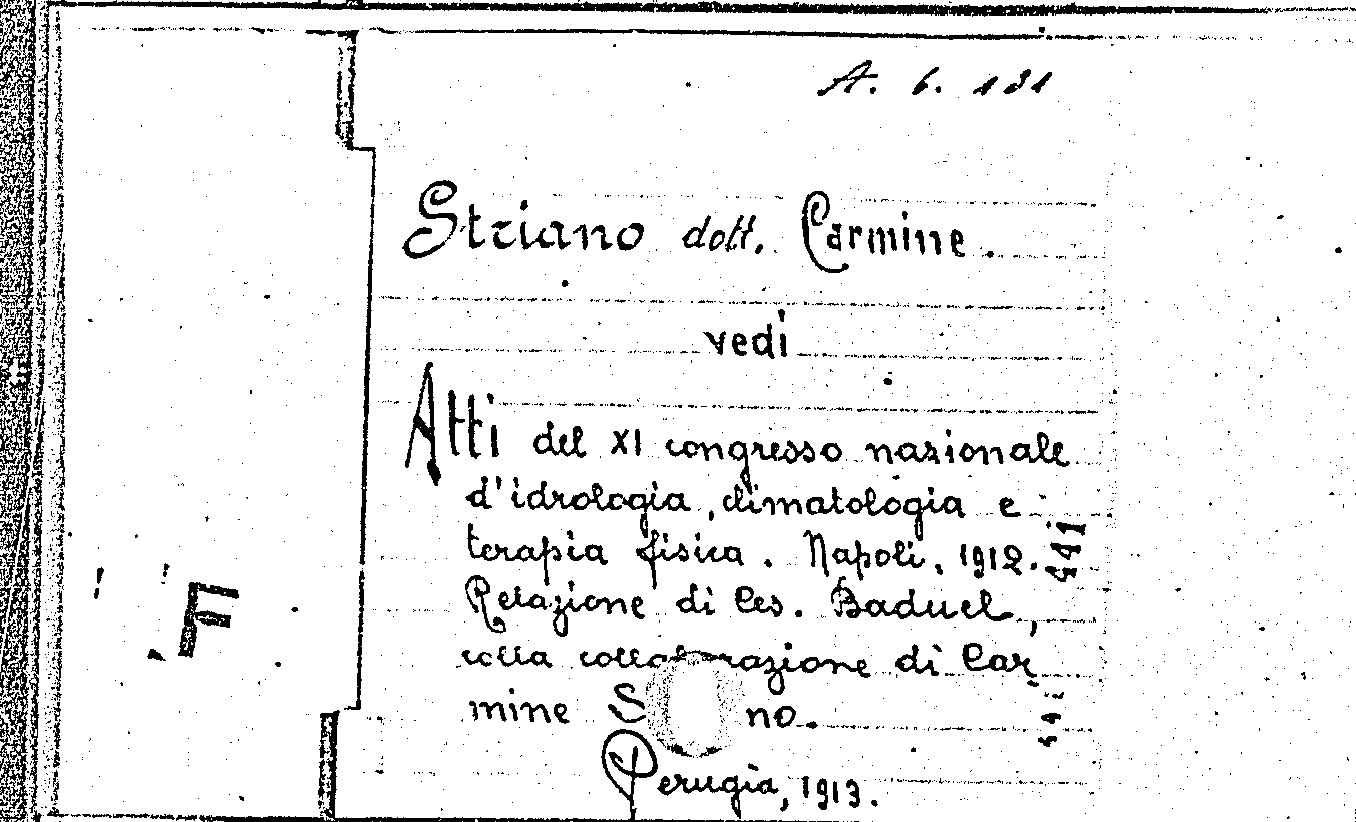 A. 6. 131
Striano dott. Carmine.
vedi
Atti del XI congresso nazionale
d'idrologia, climatologia e
terapia fisica. Napoli. 1912.
Relazione di Ces. Baduel,
colla collaborazione di Car
mine S no.
Perugia, 1913.
F